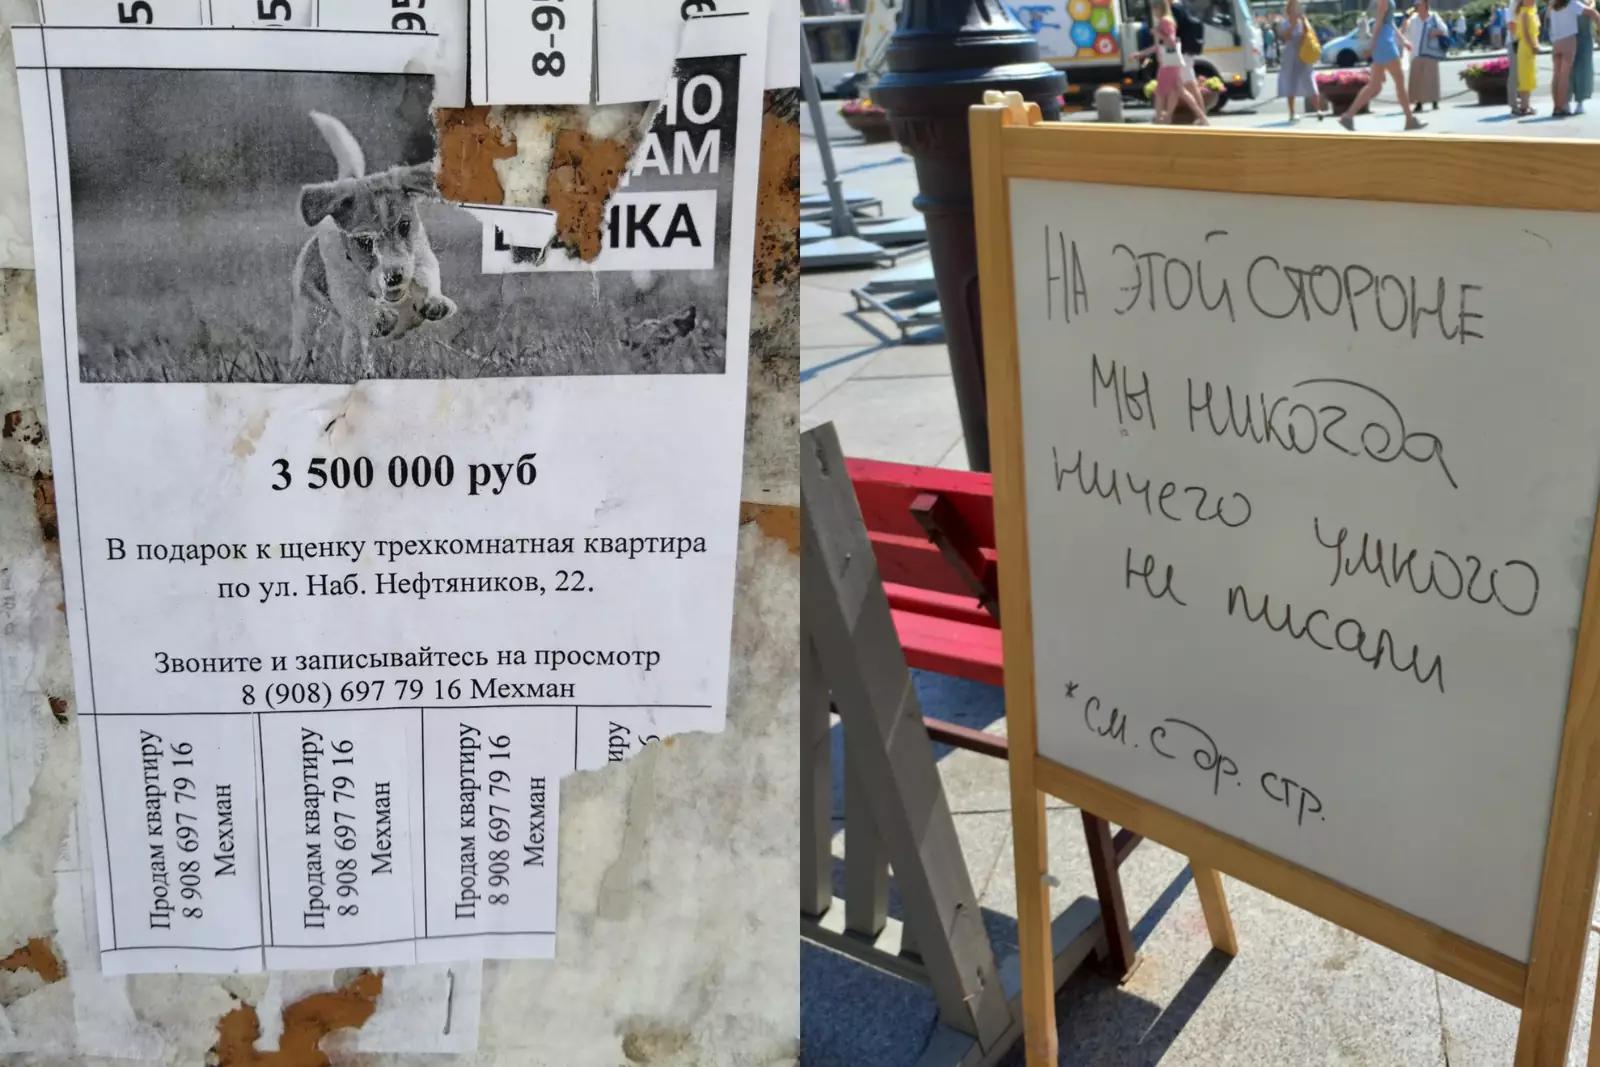 8-95
АМ
НКА
3 500 000 руб
В подарок к щенку трехкомнатная квартира
по ул. Наб. Нефтяников, 22.
Звоните и записывайтесь на просмотр
8 (908) 697 79 16 Мехман
Продам квартиру
8 908 697 79 16
Мехман
Продам квартиру
8 908 697 79 16
Мехман
Продам квартиру
8 908 697 79 16
Мехман
иру
НА ЭТОЙ СТОРОНЕ
МЫ НИКОГДА
НИЧЕГО УМНОГО
НЕ ПИСАЛИ
*СМ. С ДР. СТР.